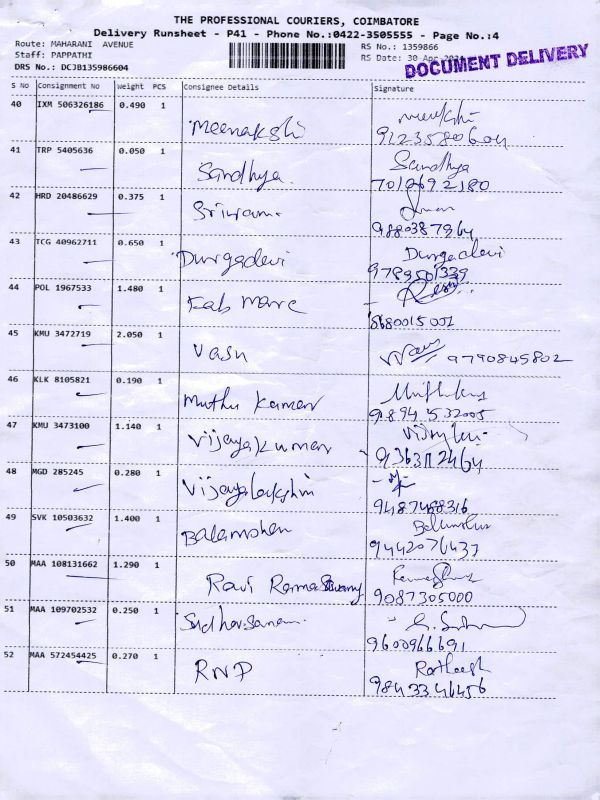 THE PROFESSIONAL COURIERS, COIMBATORE
Delivery Runsheet - P41 - Phone No.:0422-3505555 - Page No.:4
Route: MAHARANI AVENUE RS No.: 1359866
Staff: PAPPATHI RS Date: 30 Apr
DRS No.: DCJB135986604 DOCUMENT DELIVERY
S No Consignment No Weight PCS Consignee Details Signature
40 IXM 506326186 0.490 1 Meenakshi
41 TRP 5405636 0.050 1 Sandhya Sandhya
7012692180
42 HRD 20486629 0.375 1 Sriram
43 TCG 40962711 0.650 1 Durgadevi Durgadevi
44 POL 1967533 1.480 1
8680015001
45 KMU 3472719 2.050 1 Vasu 9790845802
46 KLK 8105821 0.190 1 Muthu Kumar
47 KMU 3473100 1.140 1 Vijayakumar
48 MGD 285245 0.280 1 Vijayalakshmi
9487468316
49 SVK 10503632 1.400 1 Balamohan
9442076437
50 MAA 108131662 1.290 1 Ravi Ramaswamy
9087305000
51 MAA 109702532 0.250 1 Sudharsanam
9600966691
52 MAA 572454425 0.270 1 RNP Ratheesh
9843346456